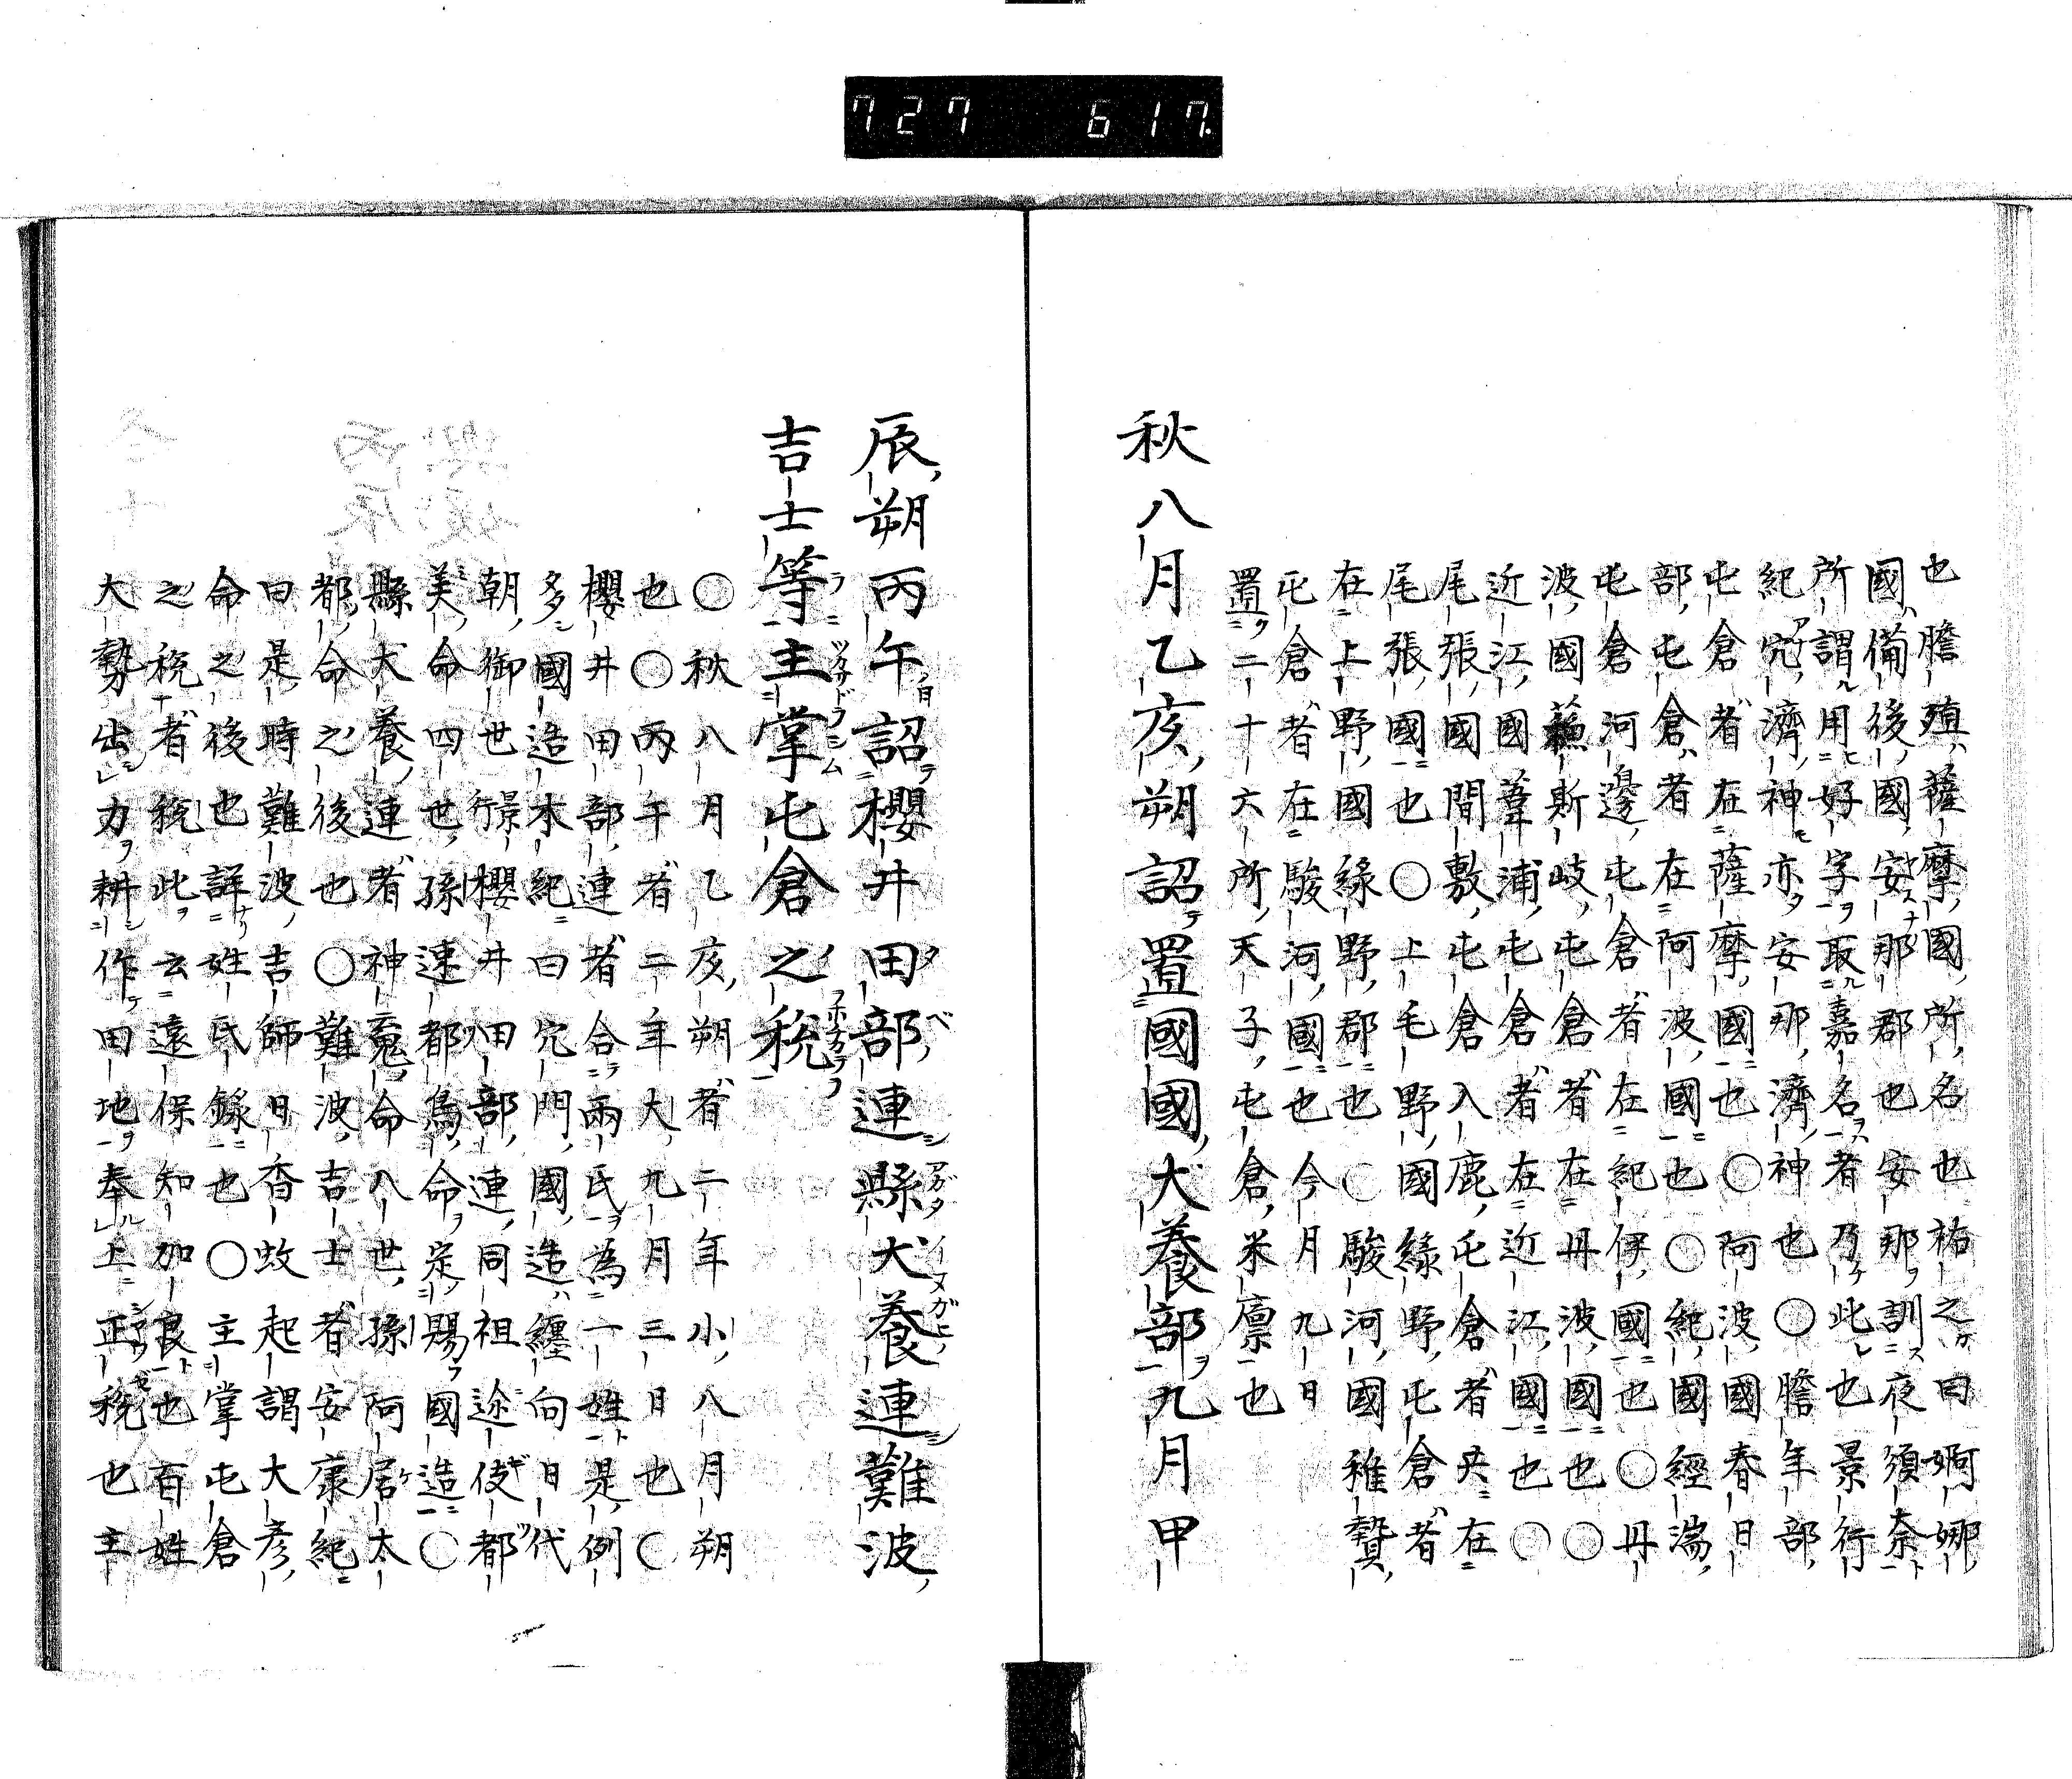 727 617.
也膽殖薩摩國所名也祐之曰婀娜
國備後國安那郡也安那訓夜須奈
所謂用好字取嘉名者乃此也景行
紀宍濟神亦安那濟神也〇膽年部
屯倉者在薩摩國也〇阿波國春日
部屯倉者在阿波國也〇紀國經湍
屯倉河邊屯倉者在紀伊國也〇丹
波國蘓斯岐屯倉者在丹波國也〇
近江國葦浦屯倉者在近江國也〇
尾張國間敷屯倉入鹿屯倉者共在
尾張國也〇上毛野國緑野屯倉者
在上野國緑野郡也〇駿河國稚贄
屯倉者在駿河國也今月九日
置二十六所天子屯倉米廪也
秋八月乙亥朔詔置國國犬養部九月甲
辰朔丙午詔櫻井田部連縣犬養連難波
吉士等主掌屯倉之税
〇秋八月乙亥朔者二年小八月朔
也〇丙午者二年大九月三日也〇
櫻井田部連者合兩氏為一姓是例
多國造本紀曰穴門國造纏向日代
朝御世景行櫻井田部連同祖迩伎都
美命四世孫速都鳥命定賜國造〇
縣犬養連者神魂命八世孫阿居太
都命之後也〇難波吉士者安康紀
曰是時難波吉師日香蚊起謂大彦
命之後也詳姓氏錄也〇主掌屯倉
之税者税此云遠保知加良也百姓
大勢出力耕作田地奉上正税也主